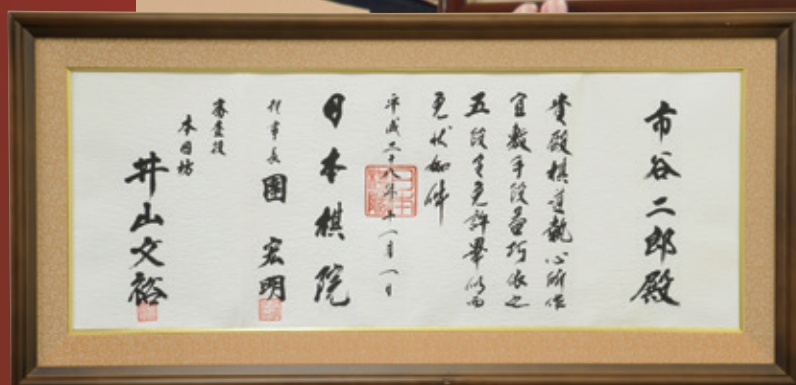 市谷二郎殿
貴殿棋道執心所作
宜敷手段益巧依之
五段令免許畢仍而
免状如件
平成二十八年十一月一日
日本棋院
理事長 團 宏明
審査役
本因坊
井山文裕